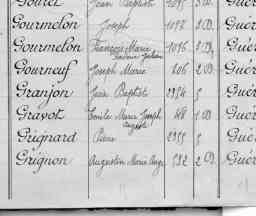 Gouret Jean Baptiste
Gourmelon Joseph 1097 2 D. Guér
Gourmelon François Marie 1096 2 D. Guér
Gourneuf Joseph Marie 206 2 D. Guér
Granjon Jean Baptiste 2954 5 Guér
Gravot Emile Marie Joseph 1 D. Guér
Auguste
Grignard Pierre 2955 5 Guér
Grignon Augustin Marie Ange 532 2 D. Guér